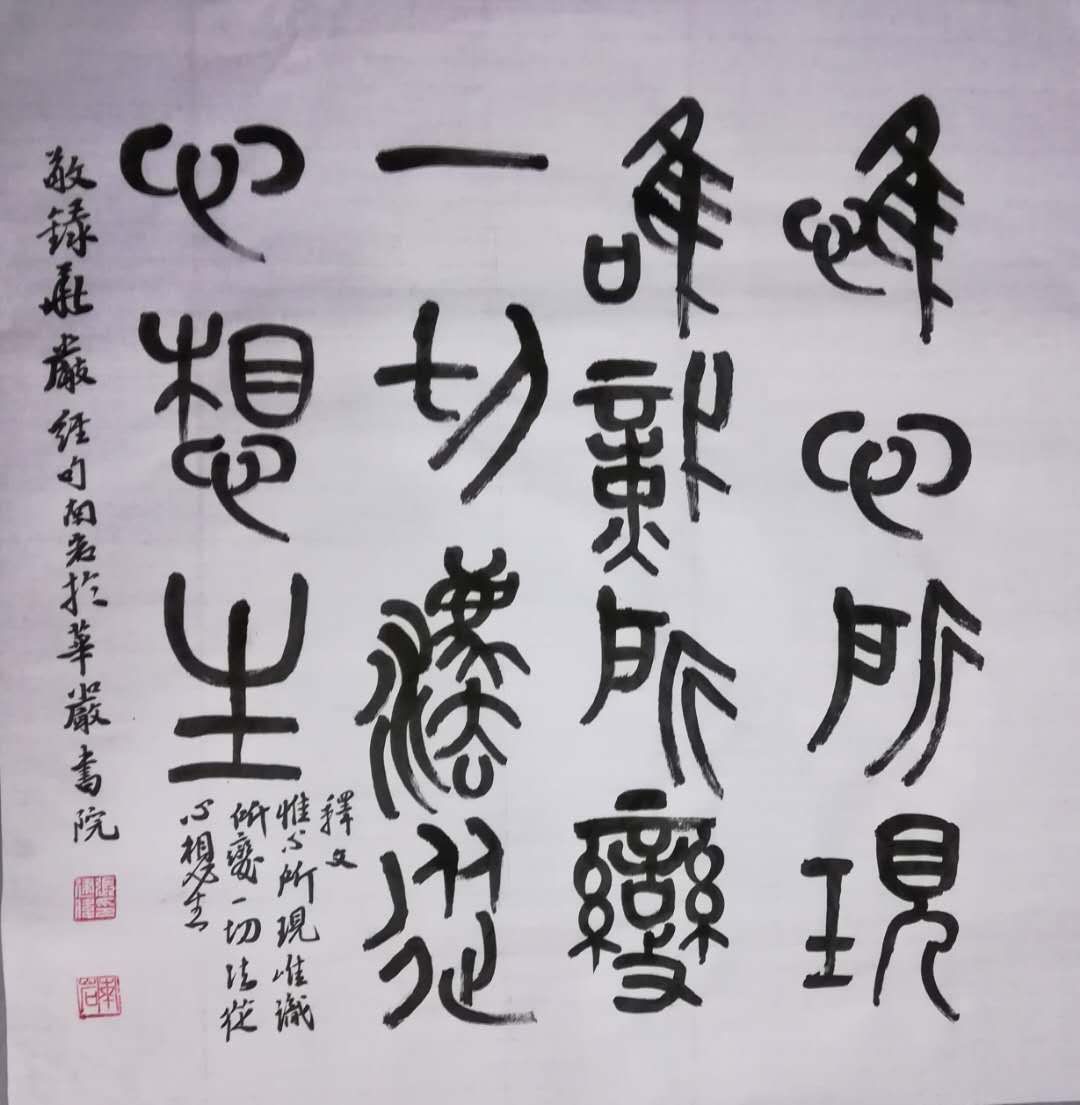 惟心所現
唯識所變
一切灋從
心想生
釋文
惟心所現惟識
所變一切法從
心想生
敬録華嚴經句南岩於華嚴書院